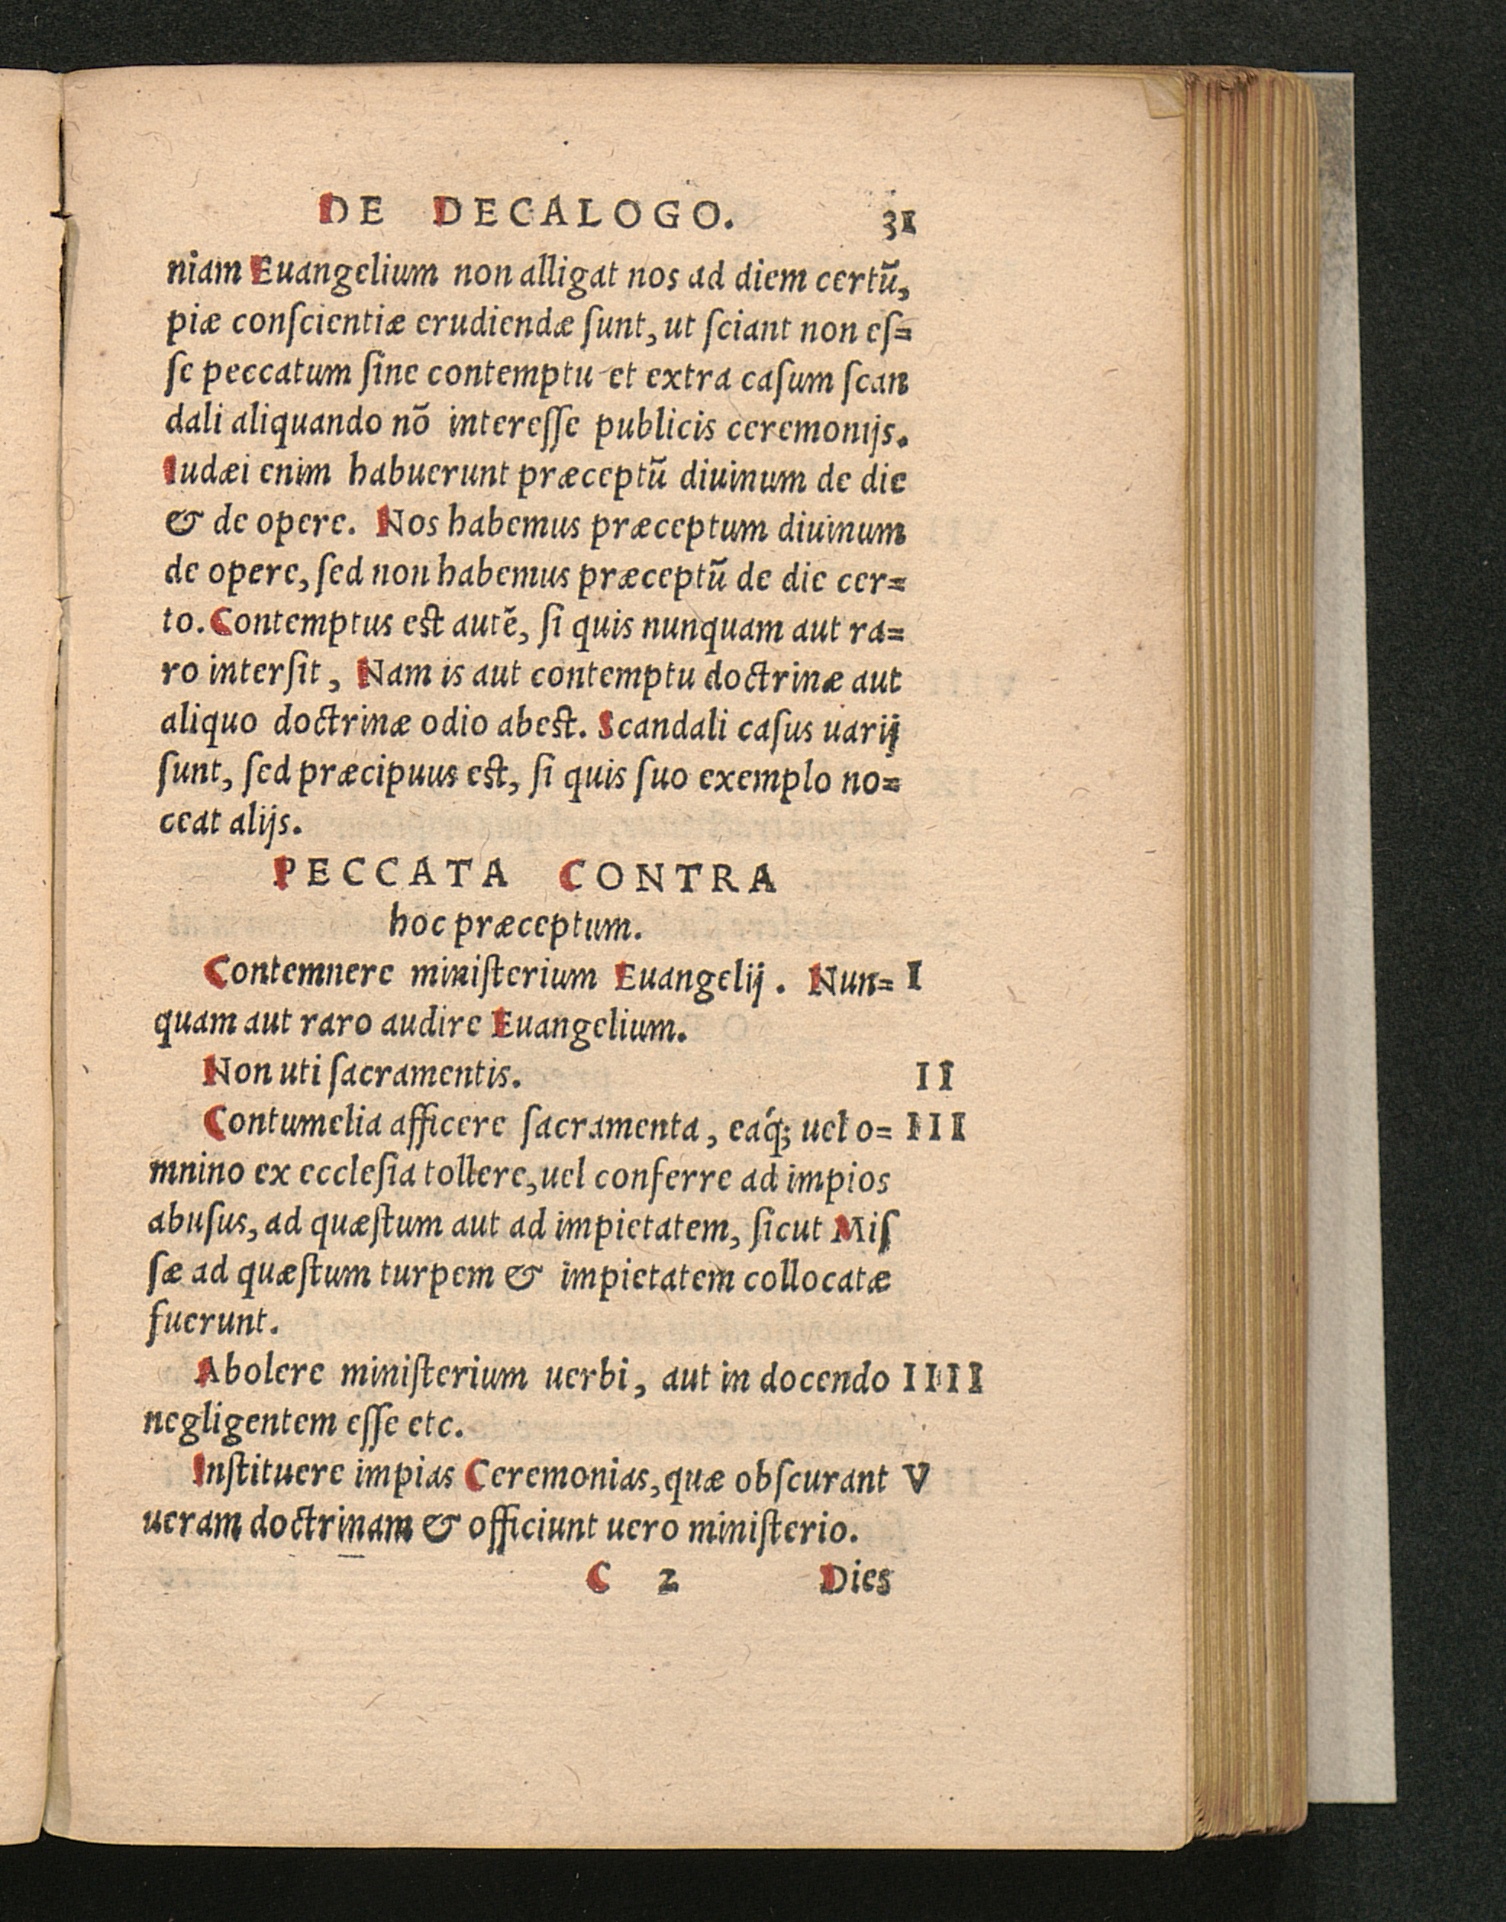 DE DECALOGO. 31
niam Euangelium non alligat nos ad diem certũ,
piæ conſcientiæ erudiendæ ſunt, ut ſciant non eſ=
ſe peccatum ſine contemptu et extra caſum ſcan
dali aliquando nõ intereſſe publicis ceremonijs.
Iudæi enim habuerunt præceptũ diuinum de die
& de opere. Nos habemus præceptum diuinum
de opere, ſed non habemus præceptũ de die cer=
to. Contemptus est autẽ, ſi quis nunquam aut ra=
ro interſit, Nam is aut contemptu doctrinæ aut
aliquo doctrinæ odio abest. Scandali caſus uarij
ſunt, ſed præcipuus est, ſi quis ſuo exemplo no=
ceat alijs.
PECCATA CONTRA
hoc præceptum.
Contemnere miniſterium Euangelij. Nun= I
quam aut raro audire Euangelium.
Non uti ſacramentis. II
Contumelia afficere ſacramenta, eáq; uel o= III
mnino ex eccleſia tollere, uel conferre ad impios
abuſus, ad quæſtum aut ad impietatem, ſicut Miſ
ſæ ad quæſtum turpem & impietatem collocatæ
fuerunt.
Abolere miniſterium uerbi, aut in docendo IIII
negligentem eſſe etc.
Inſtituere impias Ceremonias, quæ obſcurant V
ueram doctrinam & officiunt uero miniſterio.
C 2 Dies